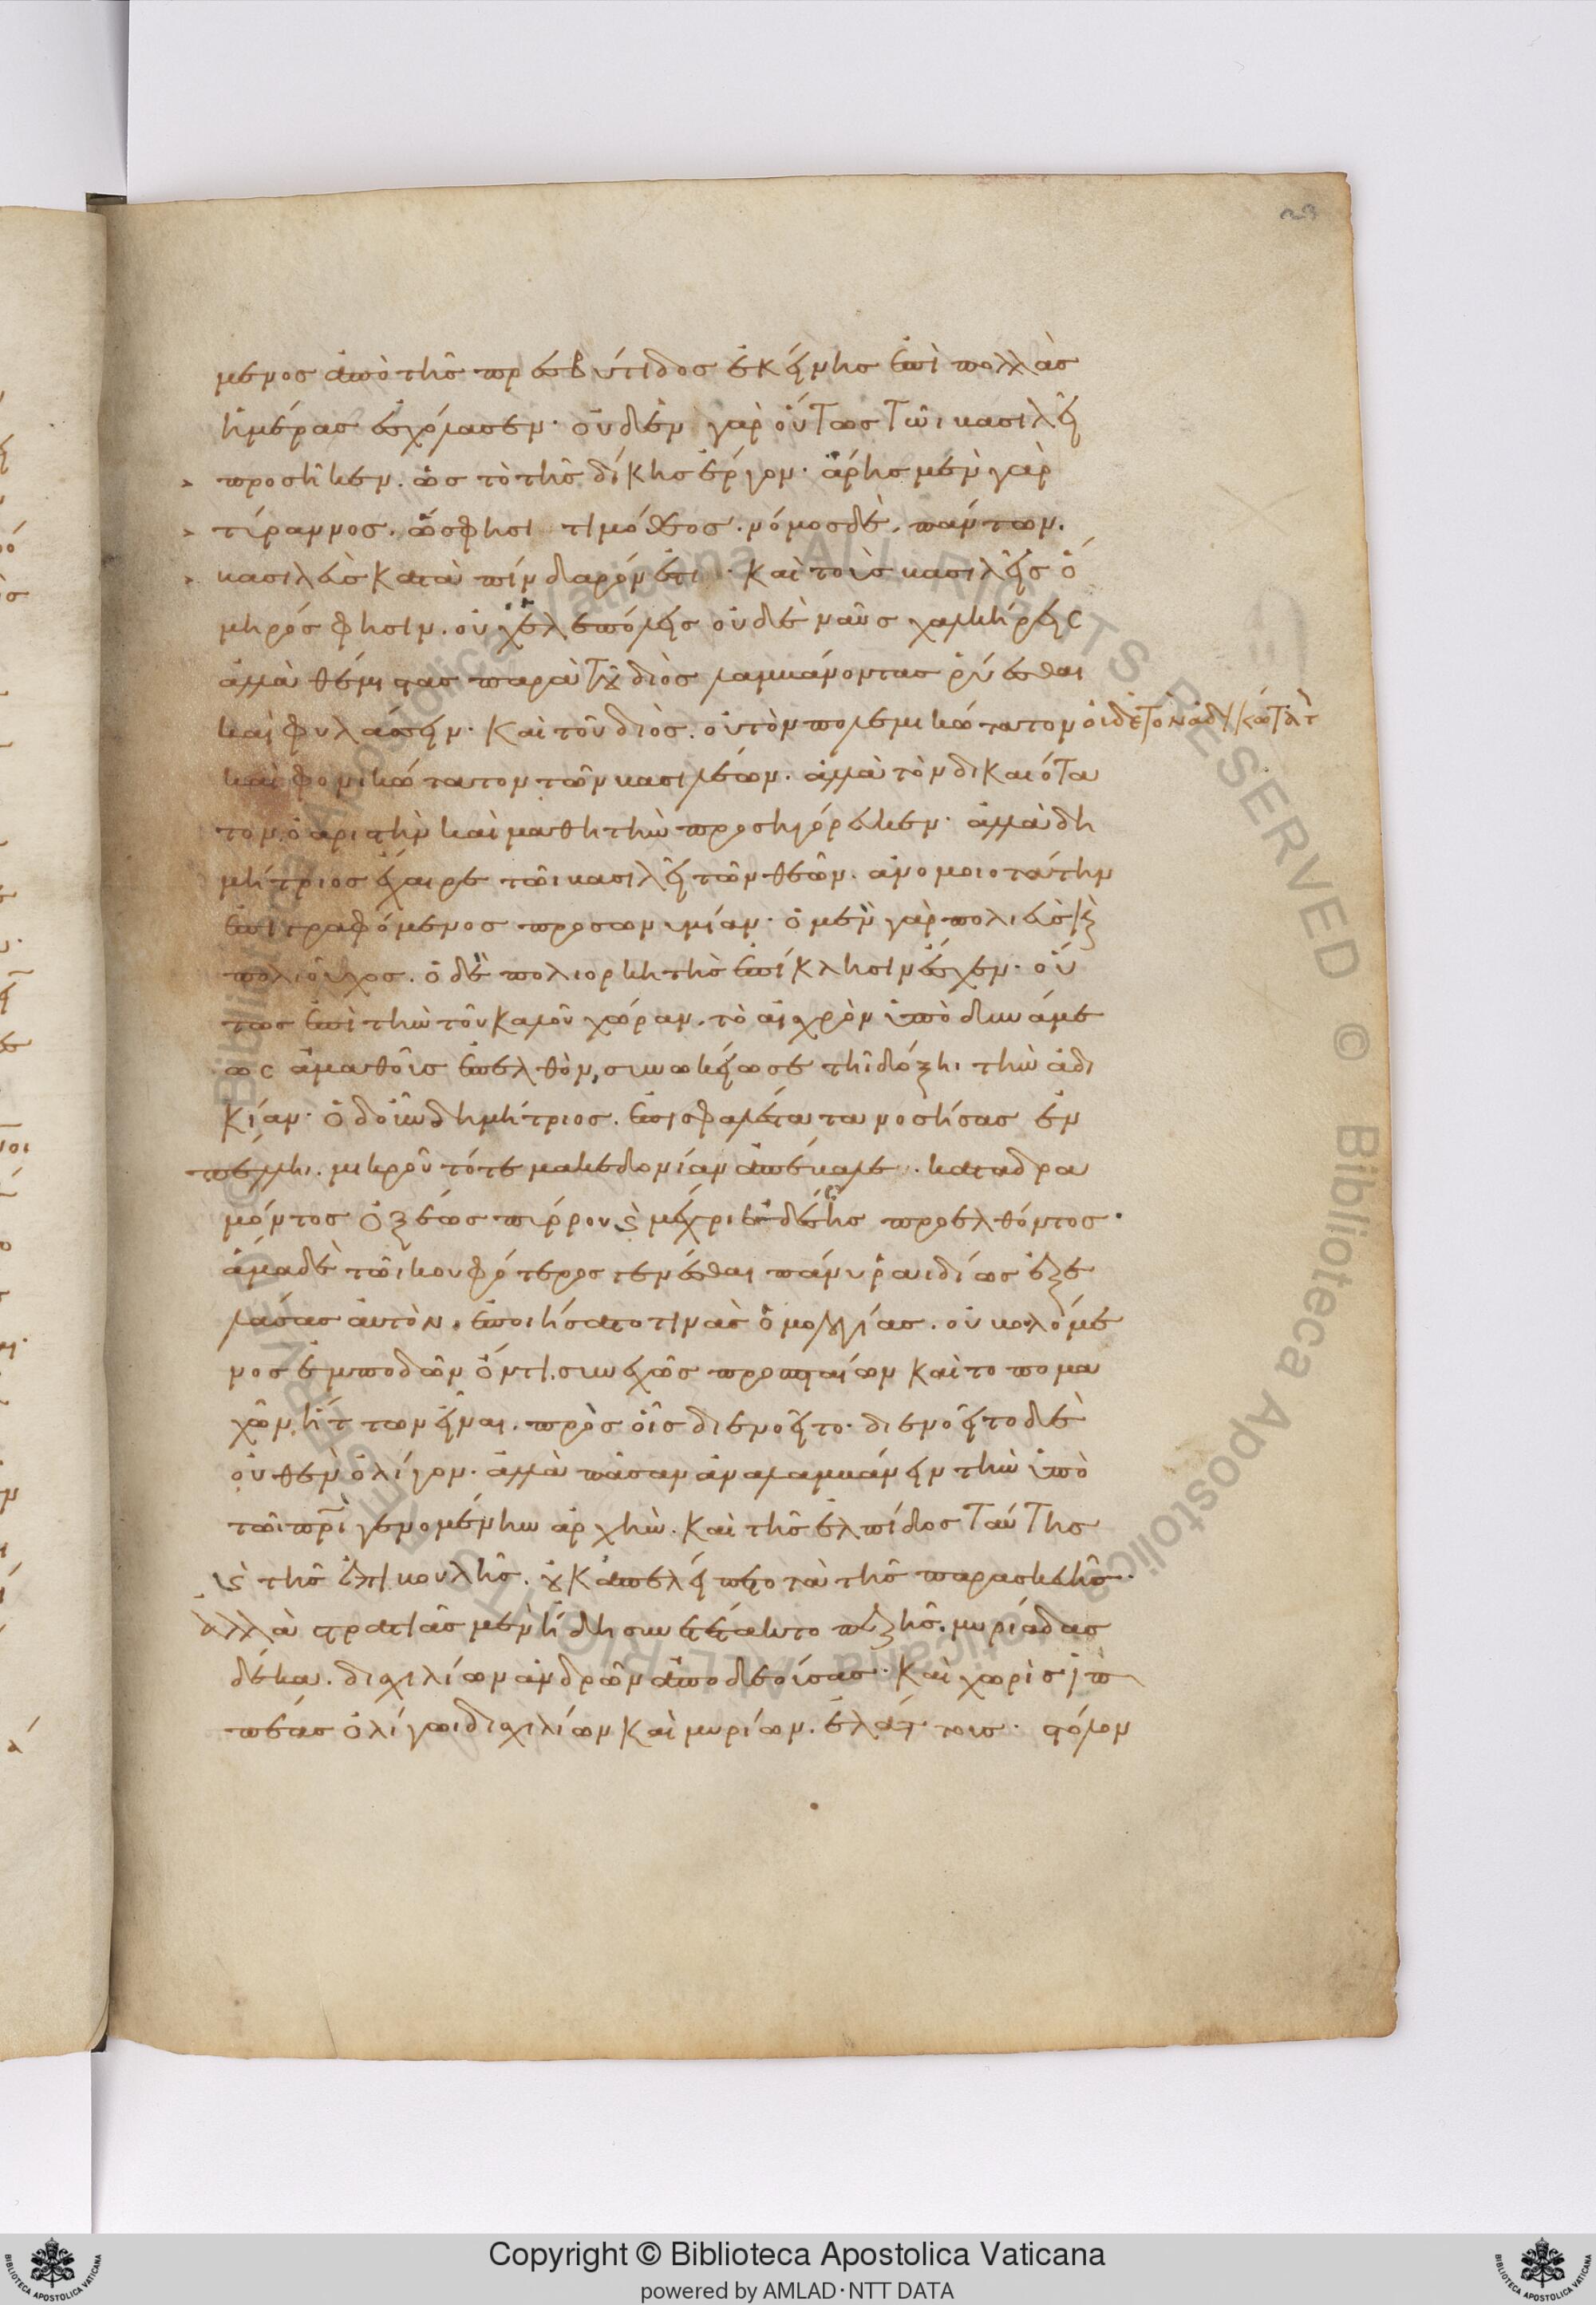 23
μενος ἀπὸ τῆς πρεσβύτιδος ἐκείνης ἐπὶ πολλὰς
ἡμέρας ἐσχόλασεν· οὐδὲν γὰρ οὕτως τῶι βασιλεῖ
προσῆκεν. ὡς τὸ τῆς δίκης ἔργον· ἄρης μὲν γὰρ
τύραννος. ὥς φησι τιμόθεος. νόμος δὲ, πάντων.
βασιλεὺς κατὰ πίνδαρόν ἐστι· καὶ τοὺς βασιλεῖς ὅ
μηρός φησιν. οὐχ ἑλεπόλεις οὐδὲ ναῦς χαλκήρεις
ἀλλὰ θέμιστας παρὰ τοῦ διὸς λαμβάνοντας ῥύεσθαι
καὶ φυλάσσειν· καὶ τοῦ διὸς. οὐ τὸν πολεμικώτατον οὐδὲ τὸν ἀδικώτατ
καὶ φονικώτατον τῶν βασιλέων. ἀλλὰ τὸν δικαιότα
τον. ὀαριστὴν καὶ μαθητὴν προσηγόρευκεν· ἀλλὰ δη
μήτριος ἔχαιρε τῶι βασιλεῖ τῶν θεῶν. ἀνομοιοτάτην
ἐπιγραφόμενος προσωνυμίαν· ὁ μὲν γὰρ πολιεὺς κ
πολιοῦχος. ὁ δὲ πολιορκητὴς ἐπίκλησιν ἔσχεν· οὕ
τως ἐπὶ τὴν τοῦ καλοῦ χώραν. τὸ αἰσχρὸν ὑπὸ δυνάμε
ως ἀμαθοῦς ἐπελθὸν, συνωκείωσε τῆι δόξηι τὴν ἀδι
κίαν· ὁ δ οὖν δημήτριος. ἐπισφαλέστατα νοσήσας ἐν
πέλληι. μικροῦ τότε μακεδονίαν ἀπέβαλε. καταδρα
μόντος ὀξέως πύρρου ϗ μέχρι ἐδέσσης προελθόντος·
ἅμα δὲ τῶι κουφότερος γενέσθαι πάνυ ῥαιδίως ἐξε
λάσας αὐτὸν. ἐποιήσατο τινὰς ὁμολογίας. οὐ βουλόμε
νος ἐμποδὼν ὄντι. συνεχῶς προσπταίων καὶ τοπομα
χῶν ἥττων εἶναι. πρὸς οἷς διενοεῖτο· διενοεῖτο δὲ
οὐθὲν ὀλίγον· ἀλλὰ πᾶσαν ἀναλαμβάνειν τὴν ὑπὸ
τῶι πρῒ γενομένην ἀρχὴν. καὶ τῆς ἐλπίδος ταύτης
ϗ τῆς ἐπιβουλῆς. οὐκ ἀπελείπετο τὰ τῆς παρασκευῆς·
ἀλλὰ στρατιᾶς μὲν ἤδη συνετέτακτο πεζῆς. μυριάδας
δέκα. δισχιλίων ἀνδρῶν ἀποδεούσας· καὶ χωρὶς ἱπ
πέας ὀλίγωι δισχιλίων καὶ μυρίων. ἐλάττους· στόλον
Copyright © Biblioteca Apostolica Vaticana
powered by AMLAD·NTT DATA